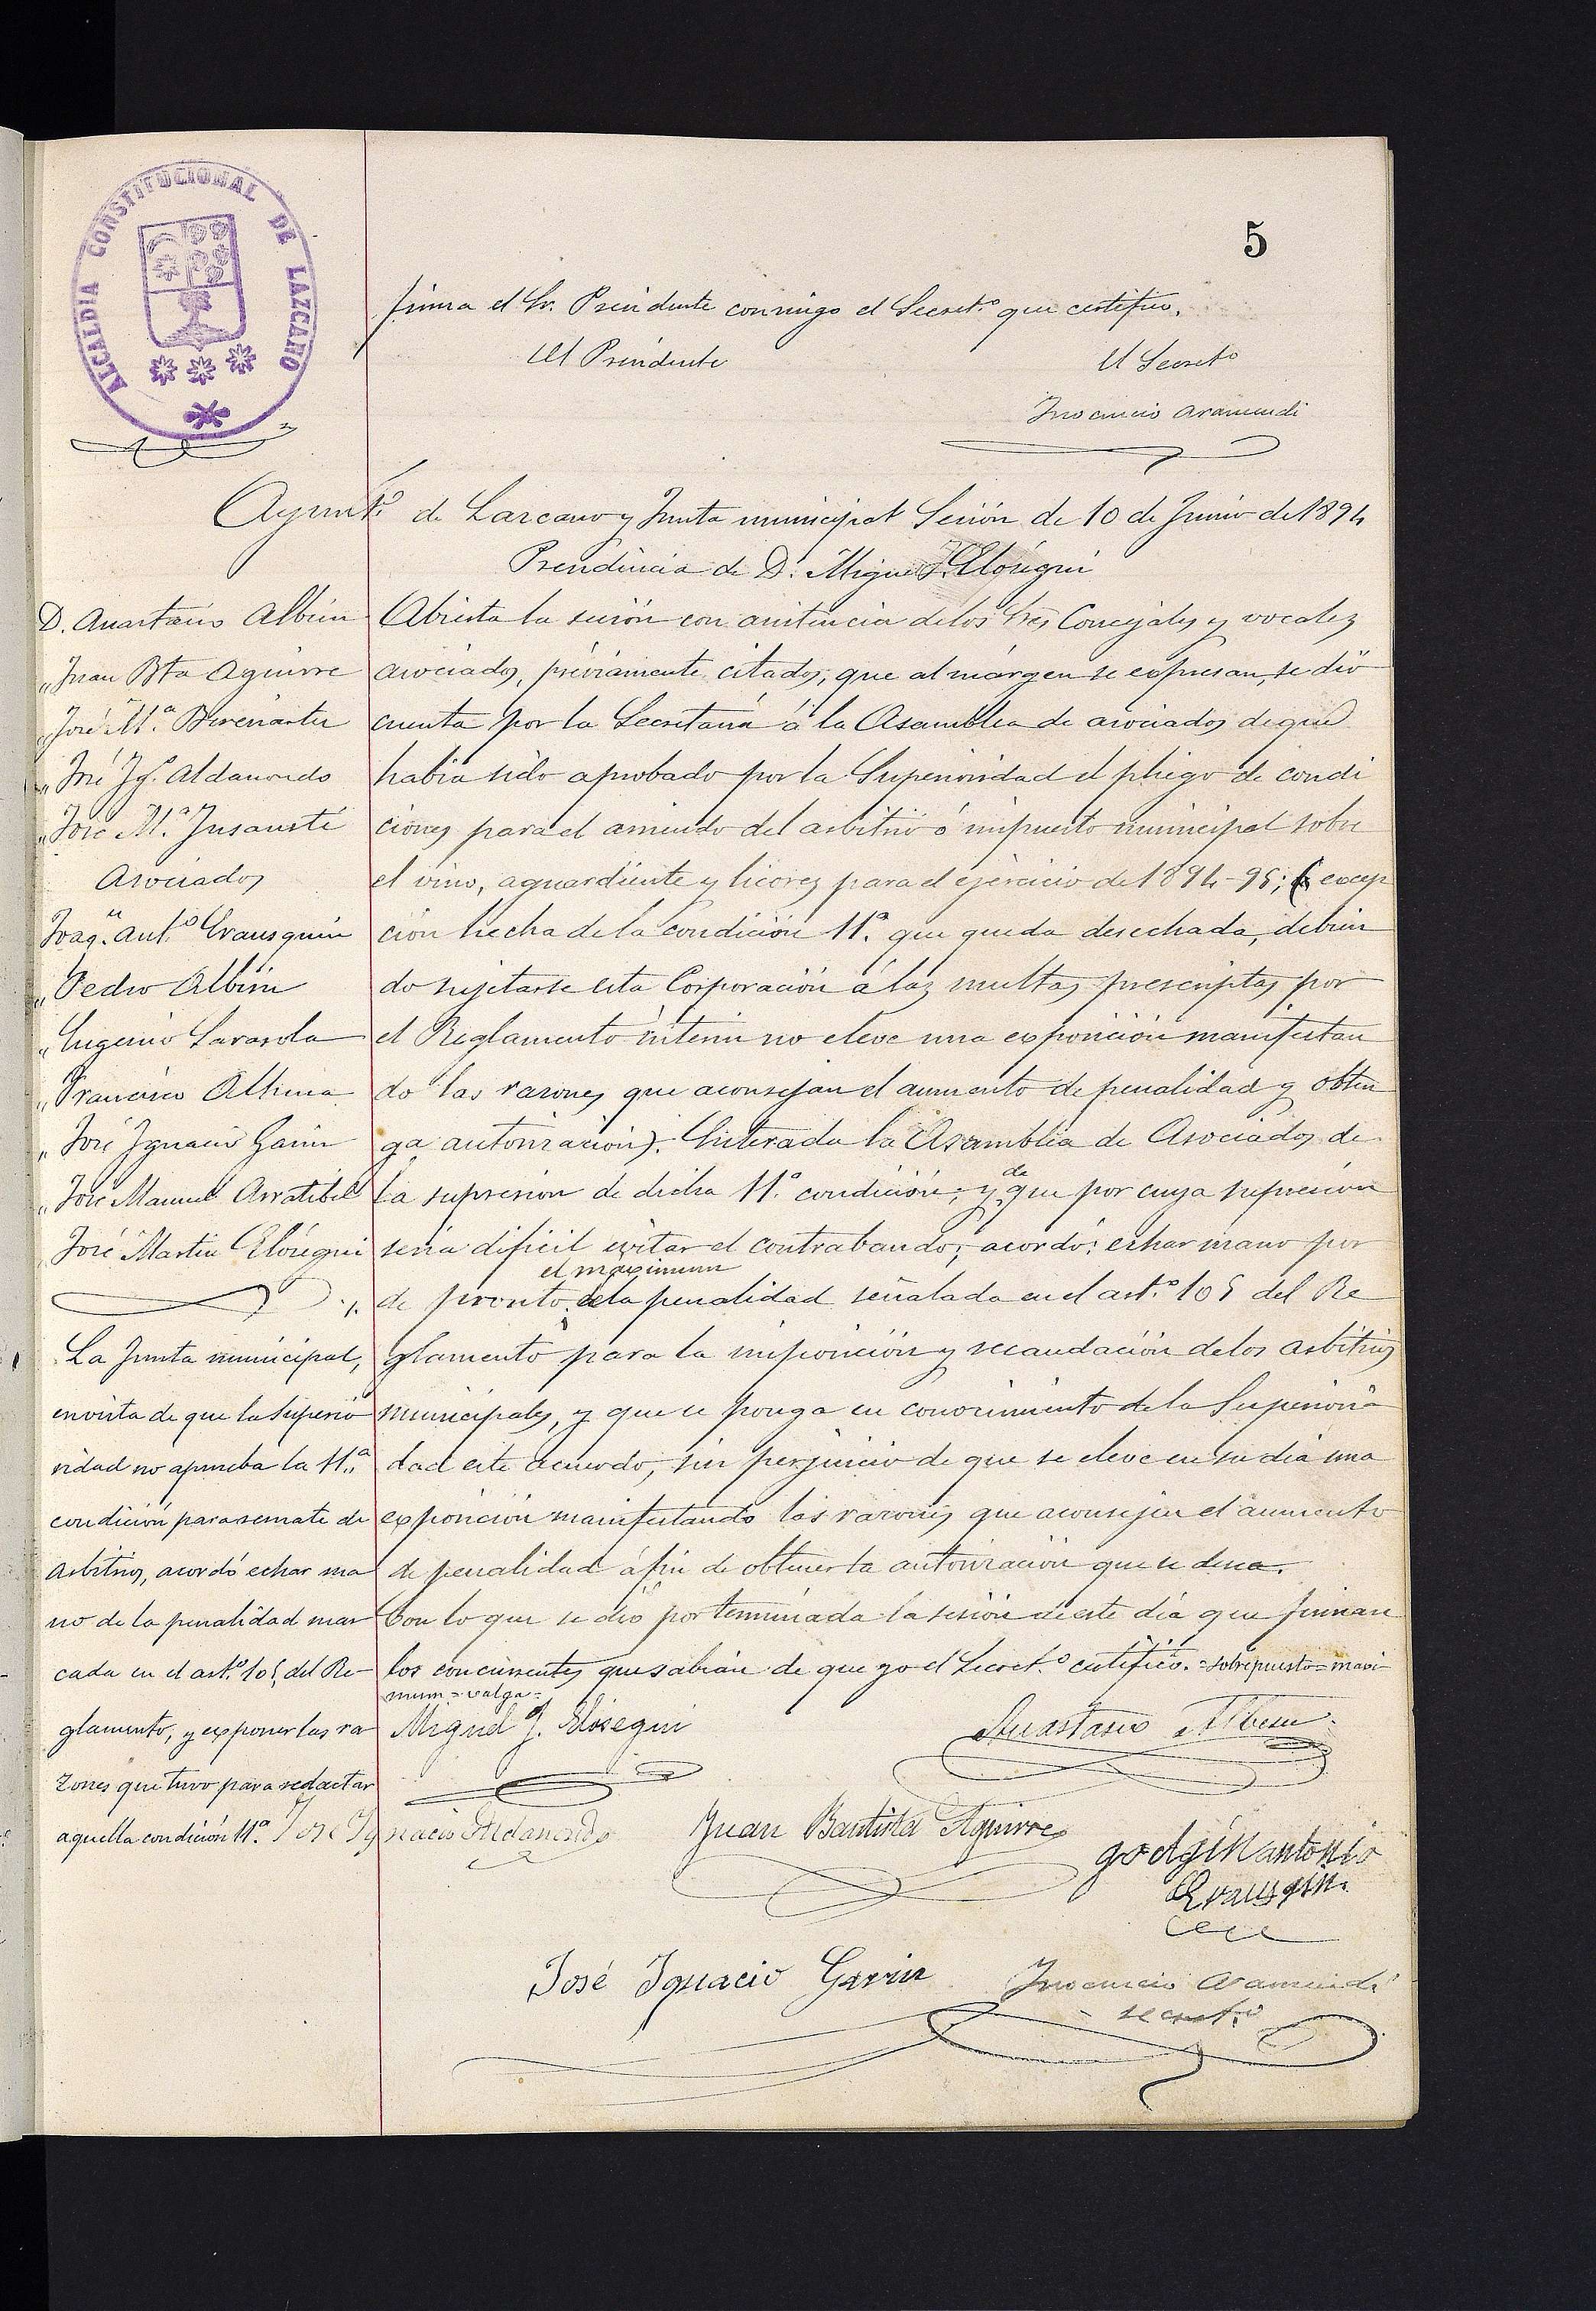 5
ALCALDIA CONSTITUCIONAL DE LAZCANO
firma el Sr. Presidente conmigo el Secret.º que certifico.
El Presidente
El Secret.º
Inocencio Aramendi
Ayunt.º de Lazcano y Junta municipal Sesión de 10 de Junio de 1894
Presidencia de D. Miguel J. Elósegui
D. Anastasio Albisu
" Juan Bta Aguirre
" José M.ª
" José Ig.º Aldanondo
" José M.ª Insausti
Asociados
Joaq.n Ant.º Erausquin
" Pedro Albisu
" Eugenio Sarasola
" Francisco Altuna
" José Ignacio Garin
" José Manuel Arratibel
" José Martin Elósegui
La Junta municipal,
en vista de que la Superio
ridad no aprueba la 11.ª
condición para remate de
arbitrios, acordó echar ma
no de la penalidad mar
cada en el art.º 105 del Re-
glamento, y exponer las ra
zones que tuvo para redactar
aquella condición 11.ª
Abierta la sesión con asistencia de los Sres Concejales y vocales
asociados, préviamente citados, que al márgen se expresan, se dió
cuenta por la Secretaría á la Asamblea de asociados de que
habia sido aprobado por la Superioridad el pliego de condi
ciones para el arriendo del arbitrio ó impuesto municipal sobre
el vino, aguardiente y licores para el ejercicio de 1894-95; (excep
ción hecha de la condición 11.ª que queda desechada, debien
do sujetarse esta Corporación á las multas prescriptas por
el Reglamento interin no eleve una exposición manifestan
do las razones que aconsejan el aumento de penalidad y obten
ga autorización). Enterada la Asamblea de Asociados de
la supresion de dicha 11.ª condición, y de que por cuya supresion
seria dificil evitar el contrabando, acordó: echar mano por
de pronto el maximum de la penalidad señalada en el art.º 105 del Re
glamento para la imposición y recaudación de los arbitrios
municipales, y que se ponga en conocimiento de la Superiori
dad este acuerdo, sin perjuicio de que se eleve en su dia una
exposición manifestando las razones que aconsejen el aumento
de penalidad á fin de obtener la autorización que se desea.
Con lo que se dió por terminada la sesión de este día que firman
los concurrentes que sabian de que yo el Secret.º certifico. = sobrepuesto = maxi-
mum = valga =
Miguel J. Elósegui
Anastasio Albisu
José Ignacio Aldanondo
Juan Bautista Aguirre
godgin antonio
Erausqin.
José Ignacio Garin
Inocencio Aramendi
secret.º